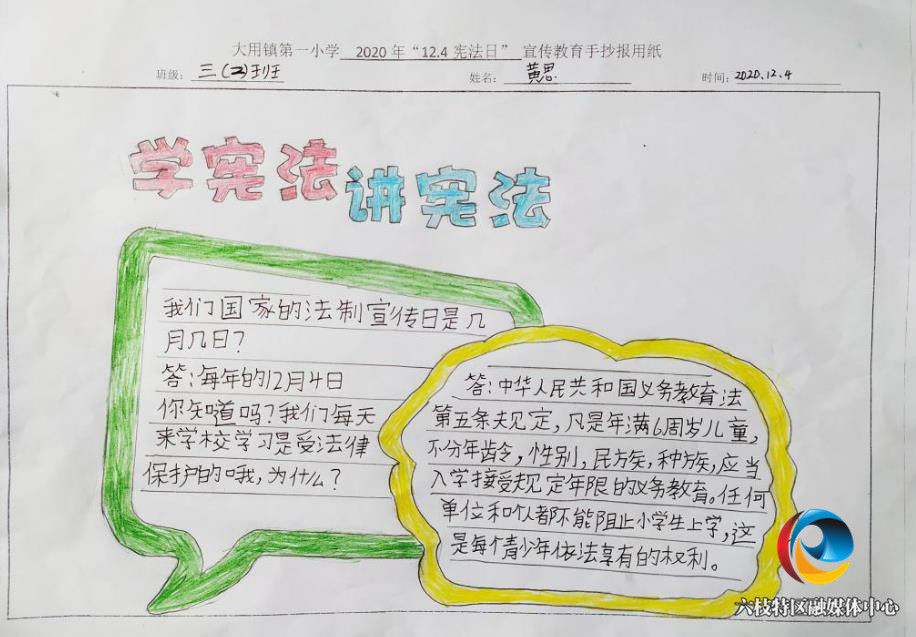 大用镇第一小学 2020年“12.4宪法日” 宣传教育手抄报用纸
班级：三(2)班 姓名：黄思 时间：2020.12.4
学宪法
讲宪法
我们国家的法制宣传日是几
月几日？
答：每年的12月4日
你知道吗？我们每天
来学校学习是受法律
保护的哦，为什么？
答：中华人民共和国义务教育法
第五条规定，凡是年满6周岁儿童，
不分年龄，性别，民族，种族，应当
入学接受规定年限的义务教育。任何
单位和个人都不能阻止小学生上学，这
是每个青少年依法享有的权利。
六枝特区融媒体中心